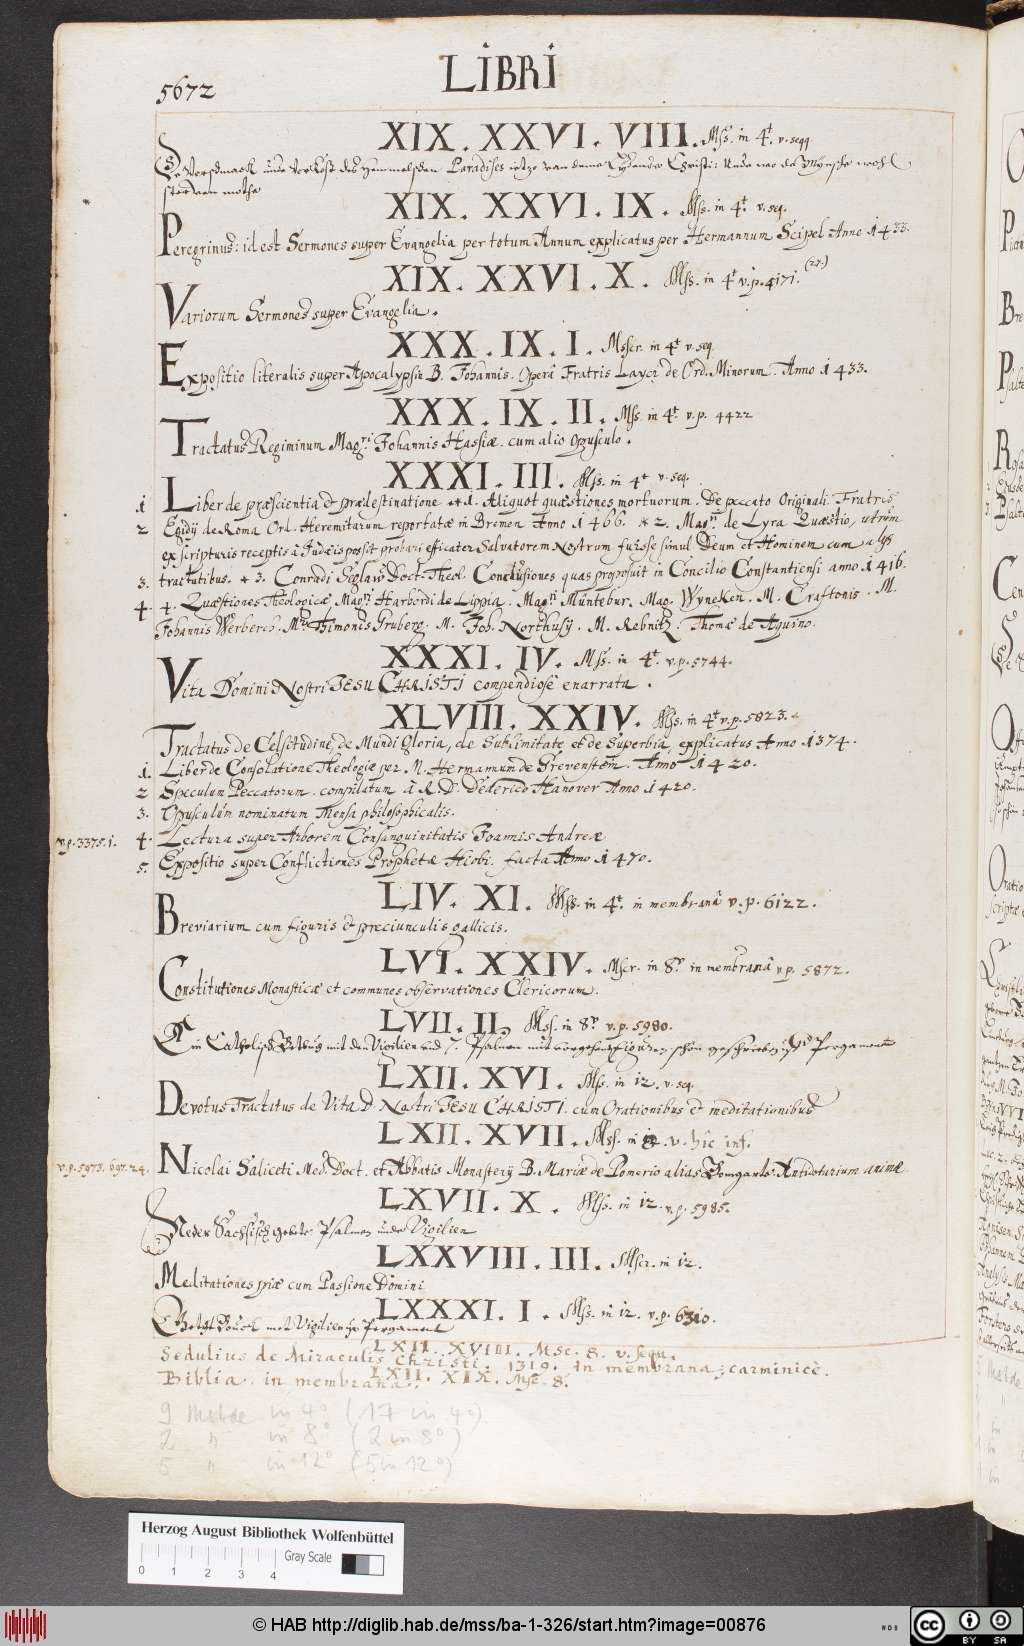 5672
LIBRI
XIX. XXVI. VIII. Mss. in 4t. v. seqq
De Vorsmaack unde Vorkost des Hemmelschen Paradises Christi: Unde wo de Mynsche wohl
sterven mothe
XIX. XXVI. IX. Mss. in 4t. v. seq.
Peregrinus: id est Sermones super Evangelia per totum Annum explicatus per Hermannum Scipel Anno 1433.
XIX. XXVI. X. Mss. in 4t v. p. 4171. (27.)
Variorum Sermones super Evangelia.
XXX. IX. I. Msscr. in 4t v. seq.
Expositio literalis super Apocalypsin B. Johannis. Operâ Fratris Laycz de Ord. Minorum. Anno 1433.
XXX. IX. II. Mss. in 4t. v. p. 4422
Tractatus Regiminum Magri. Johannis Hassiæ. cum alio Opusculo.
XXXI. III. Mss. in 4t v. seq.
1 Liber de præscientia & prædestinatione ** 1. Aliquot quæstiones mortuorum. De peccato Originali. Fratris
2 Egidij de Roma Ord. Heremitarum reportatæ in Bremen Anno 1466. * 2. Magri de Lyra Quæstio, utrum
ex scripturis receptis â Judæis possit probari efficater Salvatorem Nostrum fuisse simul Deum et Hominem cum alijs
3. tractatibus. * 3. Conradi Seglaw Doct. Theol. Conclusiones quas proposuit in Concilio Constantiensi anno 1416.
4. 4. Quæstiones Theologicæ Magri Harbordi de Lippia. Magri Müntebur. Mag. Wyneken. M. Craftonis. M.
Johannis Werberch. Mri Thimonis Gruberg. M. Joh. Northusy. M. Rebnitz. Thomæ de Aquino.
XXXI. IV. Mss. in 4t. v. p. 5744.
Vita Domini Nostri JESU CHRISTI compendiosê enarrata.
XLVIII. XXIV. Mss. in 4t v. p. 5823.
Tractatus de Celsitudine, de Mundi Gloria, de Sublimitate et de Superbia, explicatus Anno 1374.
1. Liber de Consolatione Theologiæ per M. Hermannum de Grevenstein. Anno 1420.
2 Speculum Peccatorum. compilatum â R. D. Dederico Hanover Anno 1420.
3. Opusculum nominatum Mensa philosophicalis.
v. p. 3375. 1. 4. Lectura super Arborem Consanguinitatis Joannis Andreæ
5. Expositio super Conflictiones Prophetæ Hiobi. facta Anno 1470.
LIV. XI. Mss. in 4t. in membranâ v. p. 6122.
Breviarium cum figuris & preciunculis gallicis.
LVI. XXIV. Mscr. in 8o. in membranâ v. p. 5872.
Constitutiones Monasticæ et communes observationes Clericorum.
LVII. II. Mss. in 8o. v. p. 5980.
Ein Catholisch Betbüg mit den Vigilien und 7. Psalmen mit vorgehend figuren schön geschrieben uffs Pergament
LXII. XVI. Mss. in 12. v. seq.
Devotus Tractatus de Vita D. Nostri JESU CHRISTI. cum Orationibus & meditationibus
LXII. XVII. Mss. in 12. v. hîc inf.
v. p. 5973. 24. Nicolai Saliceti Med. Doct. et Abbatis Monasterij B. Mariæ de Pomerio alias Bomgardt. Antidotarium animæ
LXVII. X. Mss. in 12. v. p. 5985.
Neder Sächsisch gebete. Psalmen unde Vigilien
LXXVIII. III. Mscr. in 12.
Meditationes piæ cum Passione Domini
LXXXI. I. Mss. in 12. v. p. 6310.
Bouck met Vigilien Pergament
LXII. XVIII. Msc. 8. v. sequ.
Sedulius de Miraculis Christi. 1319. in membrana; carminicè.
LXII. XIX. Msc. 8.
Biblia. in membrana.
9 Mscrde in 4° (17 in 4°)
2 " in 8° (2 in 8°)
5 " in 12° (5 in 12°)
Herzog August Bibliothek Wolfenbüttel
Gray Scale
0 1 2 3 4
© HAB http://diglib.hab.de/mss/ba-1-326/start.htm?image=00876
cc BY SA